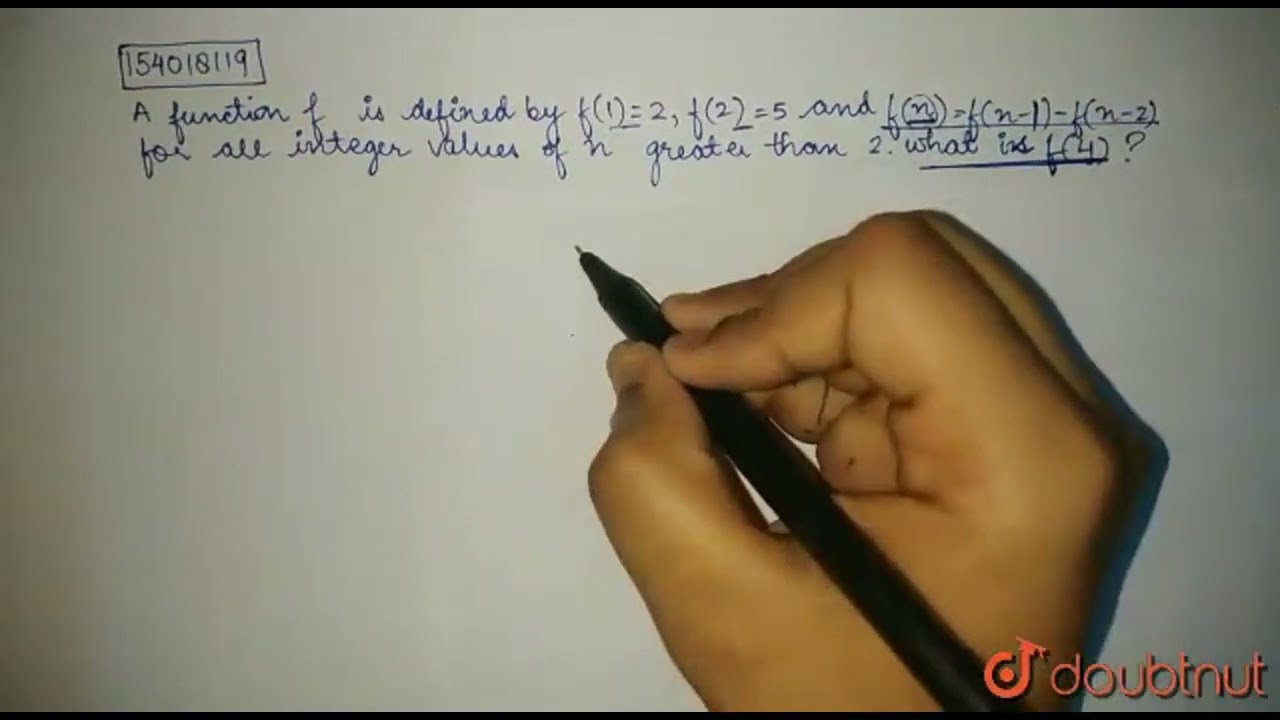 154018119
A function f is defined by f(1)=2, f(2)=5 and f(n)=f(n-1)-f(n-2)
for all integer values of n greater than 2. what is f(4) ?
doubtnut